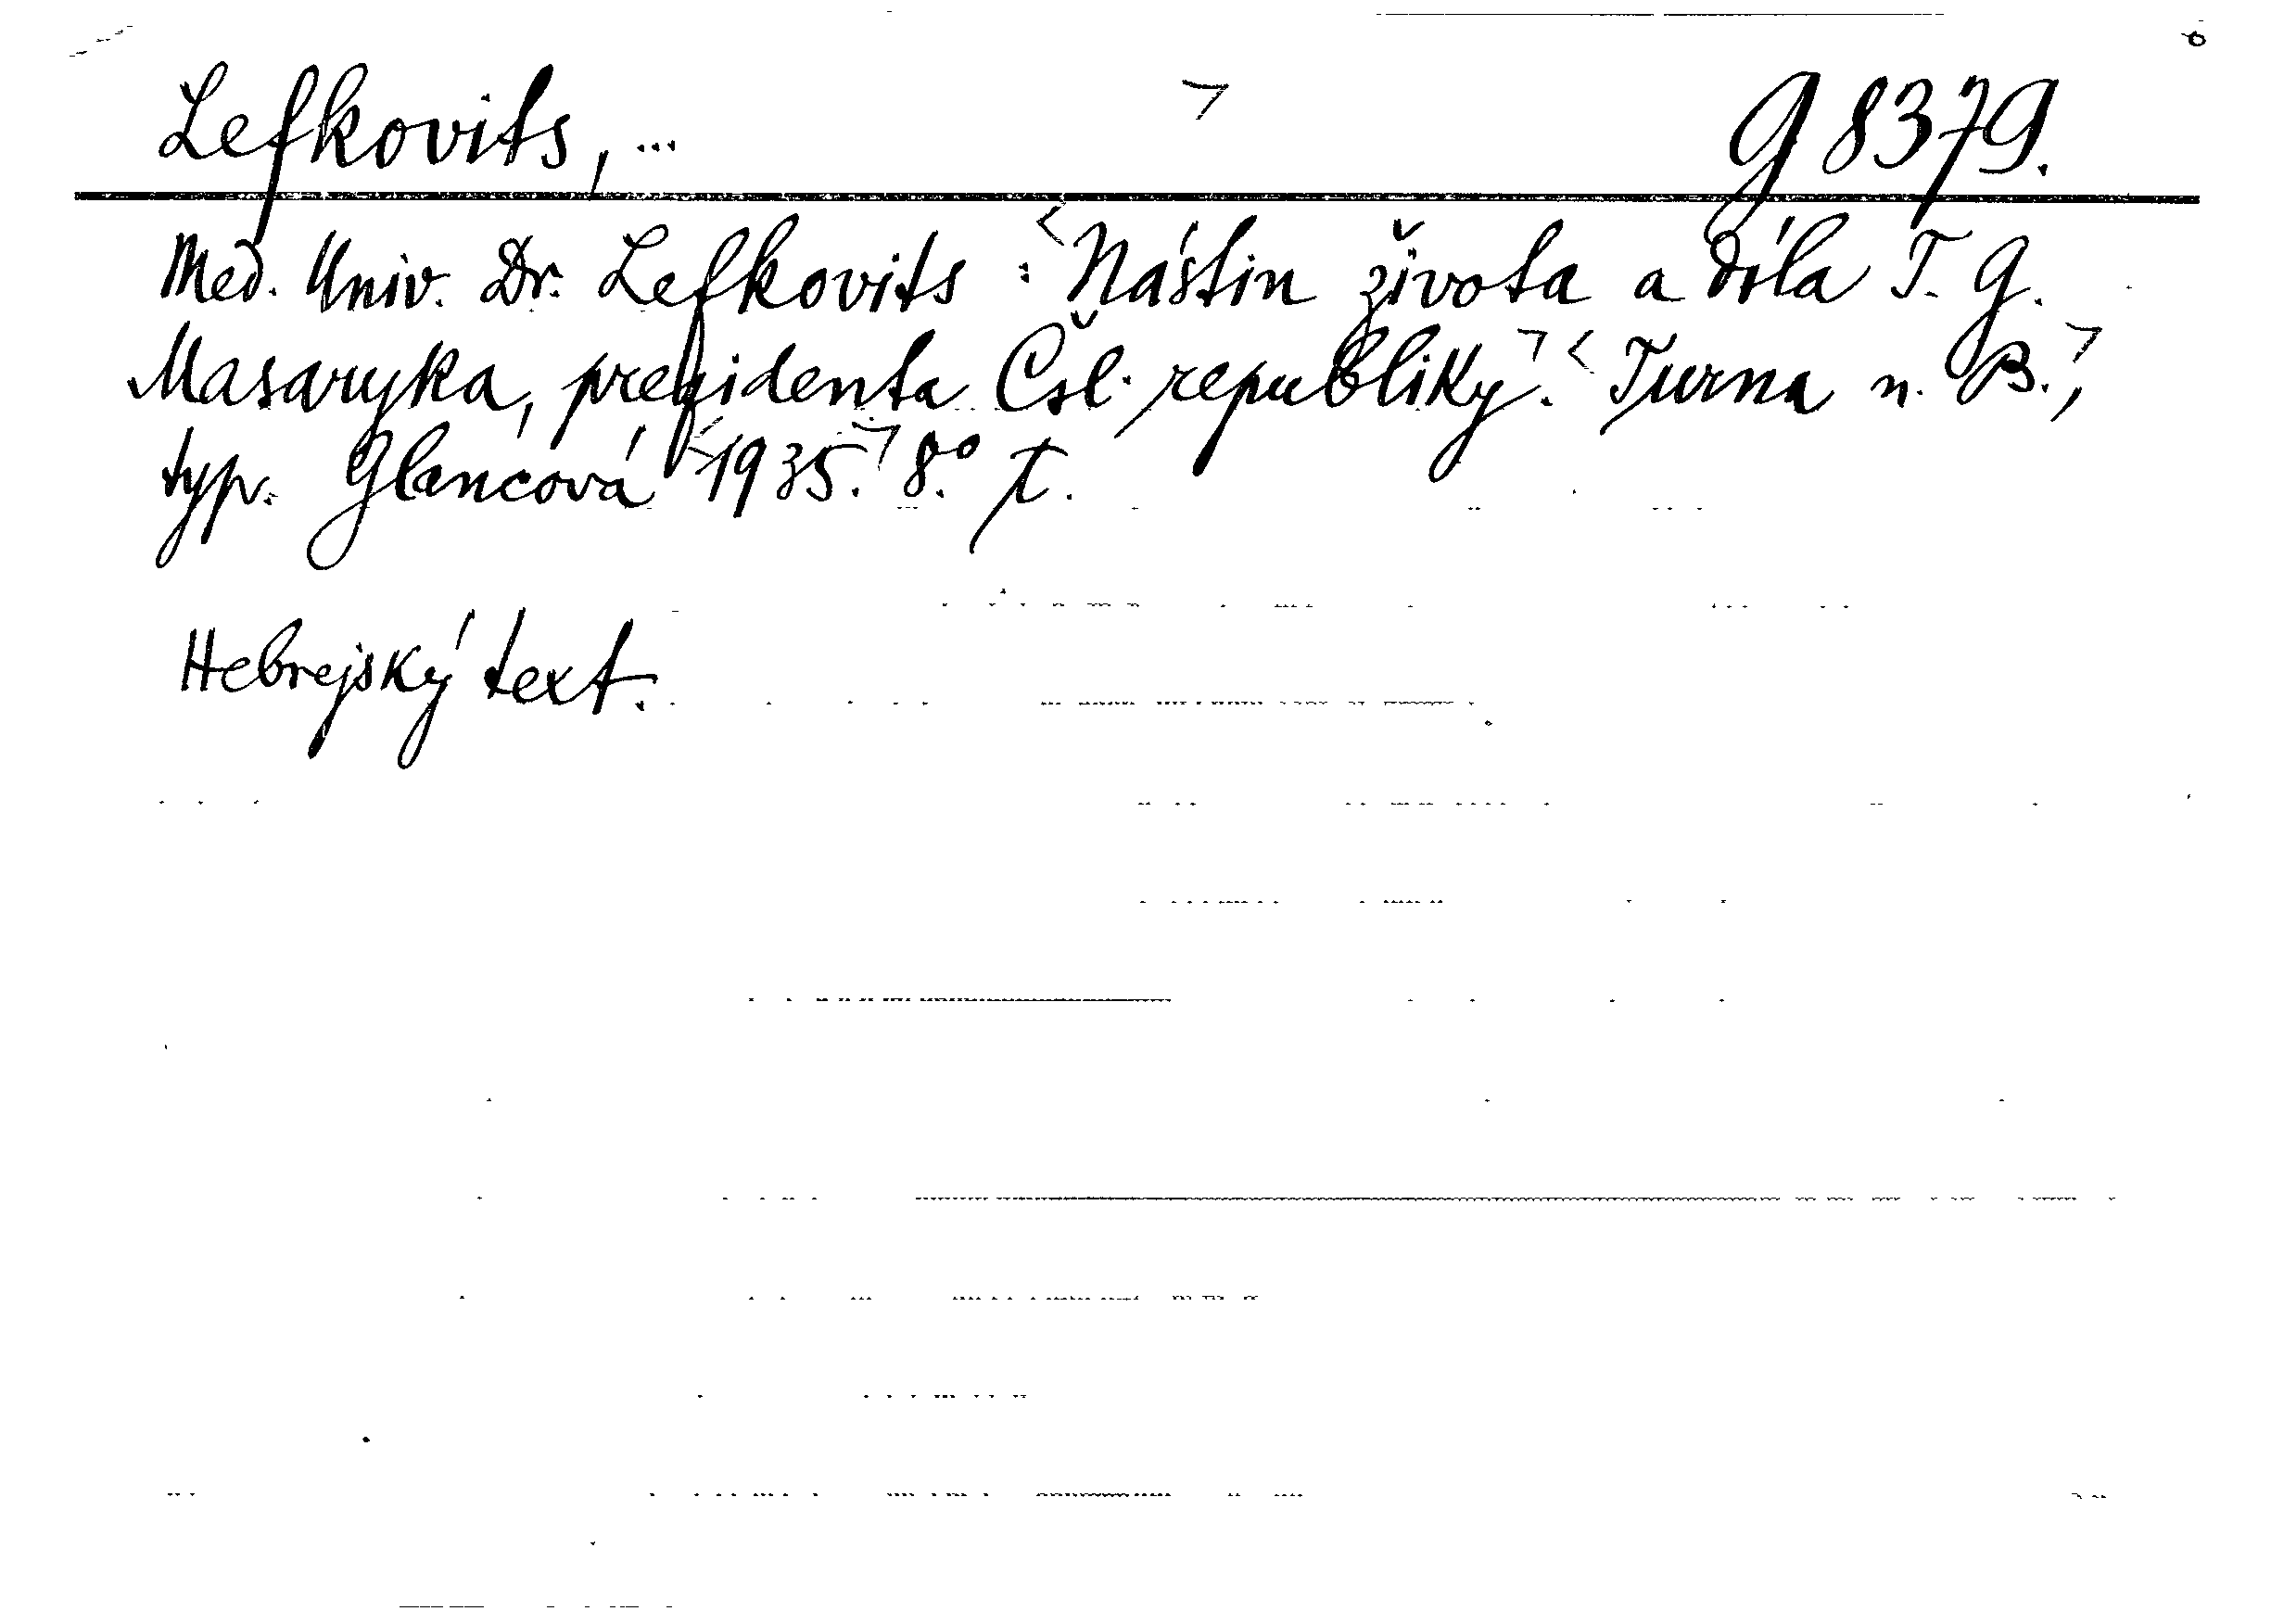 Lefkovits, ... G 8379.
Med. Univ. Dr. Lefkovits : <Nástin života a díla T. G.
Masaryka, prezidenta Čsl. republiky>. <Turna n. B.>,
typ. Glancová <1935.> 8.° T.
Hebrejský text.